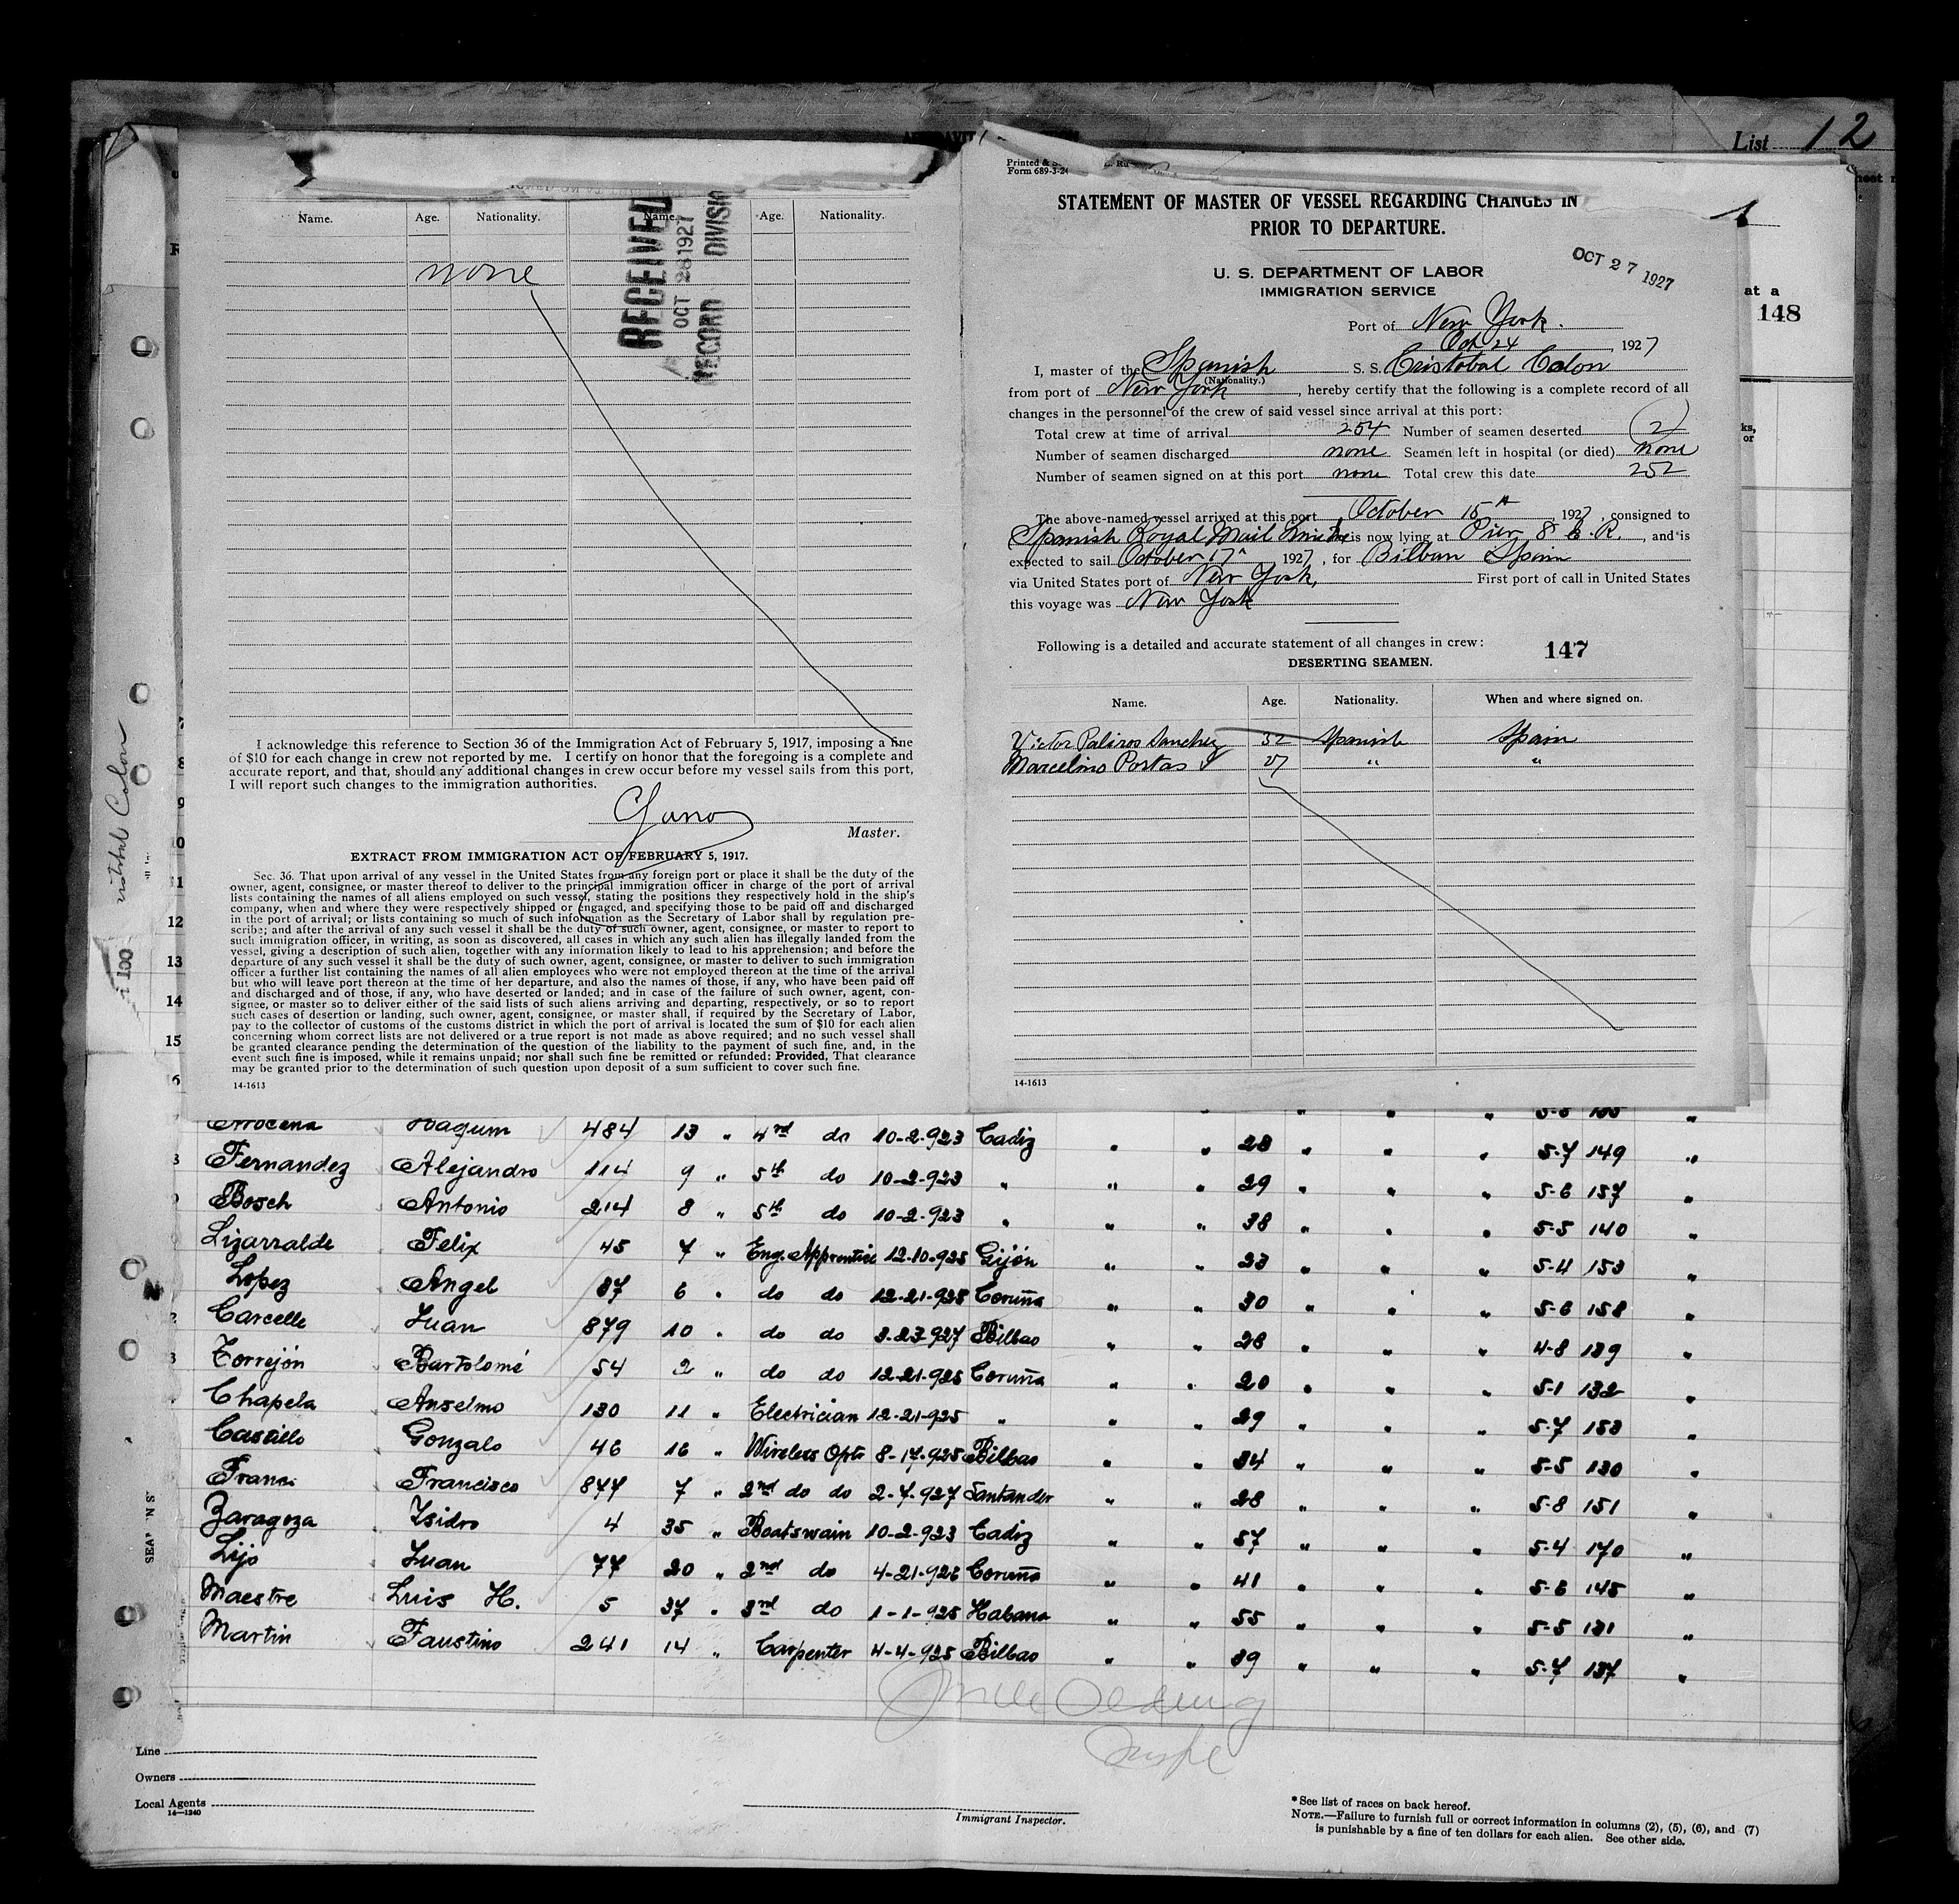 List 12
Name. Age. Nationality. Name. Age. Nationality.
none
RECEIVED
OCT 28 1927
RECORD DIVISION
I acknowledge this reference to Section 36 of the Immigration Act of February 5, 1917, imposing a fine
of $10 for each change in crew not reported by me. I certify on honor that the foregoing is a complete and
accurate report, and that, should any additional changes in crew occur before my vessel sails from this port,
I will report such changes to the immigration authorities.
Master.
EXTRACT FROM IMMIGRATION ACT OF FEBRUARY 5, 1917.
Sec. 36. That upon arrival of any vessel in the United States from any foreign port or place it shall be the duty of the
owner, agent, consignee, or master thereof to deliver to the principal immigration officer in charge of the port of arrival
lists containing the names of all aliens employed on such vessel, stating the positions they respectively hold in the ship's
company, when and where they were respectively shipped or engaged, and specifying those to be paid off and discharged
in the port of arrival; or lists containing so much of such information as the Secretary of Labor shall by regulation pre-
scribe; and after the arrival of any such vessel it shall be the duty of such owner, agent, consignee, or master to report to
such immigration officer, in writing, as soon as discovered, all cases in which any such alien has illegally landed from the
vessel, giving a description of such alien, together with any information likely to lead to his apprehension; and before the
departure of any such vessel it shall be the duty of such owner, agent, consignee, or master to deliver to such immigration
officer a further list containing the names of all alien employees who were not employed thereon at the time of the arrival
but who will leave port thereon at the time of her departure, and also the names of those, if any, who have been paid off
and discharged and of those, if any, who have deserted or landed; and in case of the failure of such owner, agent, con-
signee, or master so to deliver either of the said lists of such aliens arriving and departing, respectively, or so to report
such cases of desertion or landing, such owner, agent, consignee, or master shall, if required by the Secretary of Labor,
pay to the collector of customs of the customs district in which the port of arrival is located the sum of $10 for each alien
concerning whom correct lists are not delivered or a true report is not made as above required; and no such vessel shall
be granted clearance pending the determination of the question of the liability to the payment of such fine, and, in the
event such fine is imposed, while it remains unpaid; nor shall such fine be remitted or refunded: Provided, That clearance
may be granted prior to the determination of such question upon deposit of a sum sufficient to cover such fine.
14-1613
Printed &
Form 689-3-24
STATEMENT OF MASTER OF VESSEL REGARDING CHANGES IN
PRIOR TO DEPARTURE.
OCT 27 1927
U. S. DEPARTMENT OF LABOR
IMMIGRATION SERVICE
Port of New York.
Oct 24, 1927
I, master of the Spanish S. S. Cristobal Colon
(Nationality.)
from port of New York, hereby certify that the following is a complete record of all
changes in the personnel of the crew of said vessel since arrival at this port:
Total crew at time of arrival 254 Number of seamen deserted 2
Number of seamen discharged none Seamen left in hospital (or died) none
Number of seamen signed on at this port none Total crew this date 252
The above-named vessel arrived at this port October 15th, 1927, consigned to
Spanish Royal Mail Line is now lying at Pier 8 E. R., and is
expected to sail October 17, 1927, for Bilbao Spain
via United States port of New York, First port of call in United States
this voyage was New York
Following is a detailed and accurate statement of all changes in crew:
147
DESERTING SEAMEN.
Name. Age. Nationality. When and where signed on.
Victor Sanchez 32 Spanish Spain
Marcelino Portas 27 " "
14-1613
at a
148
7
8
9
10
11
12
13
14
15
Arrocena 484 13 " 4rd do 10-2-923 Cadiz " " 28 " " " 5-7 149 "
Fernandez Alejandro 114 9 " 5th do 10-2-923 " " " 29 " " " 5-6 157 "
Bosch Antonio 214 8 " 5th do 10-2-923 " " " 38 " " " 5-5 140 "
Lizarralde Felix 45 7 " Eng. Apprentice 12-10-925 Gijón " " 23 " " " 5-4 153 "
Lopez Angel 87 6 " do do 12-21-925 Coruña " " 30 " " " 5-6 158 "
Carcelle Juan 879 10 " do do 3-23-927 Bilbao " " 28 " " " 4-8 139 "
Torrejón Bartolomé 54 2 " do do 12-21-925 Coruña " " 20 " " " 5-1 132 "
Chapela Anselmo 130 11 " Electrician 12-21-925 " " " 29 " " " 5-7 153 "
Castillo Gonzalo 46 16 " Wireless Optr 8-17-925 Bilbao " " 34 " " " 5-5 130 "
Francisco 877 7 " 2nd do do 2-7-927 Santander " " 28 " " " 5-8 151 "
Zaragoza Isidro 4 35 " Boatswain 10-2-923 Cadiz " " 57 " " " 5-4 170 "
Lijo Juan 77 20 " 2nd do 4-21-926 Coruña " " 41 " " " 5-6 145 "
Maestre Luis H. 5 37 " 3rd do 1-1-925 Habana " " 55 " " " 5-5 131 "
Martin Faustino 241 14 " Carpenter 4-4-925 Bilbao " " 39 " " " 5-7 137 "
Line
Owners
Local Agents
14—1240
Immigrant Inspector.
* See list of races on back hereof.
NOTE.—Failure to furnish full or correct information in columns (2), (5), (6), and (7)
is punishable by a fine of ten dollars for each alien. See other side.